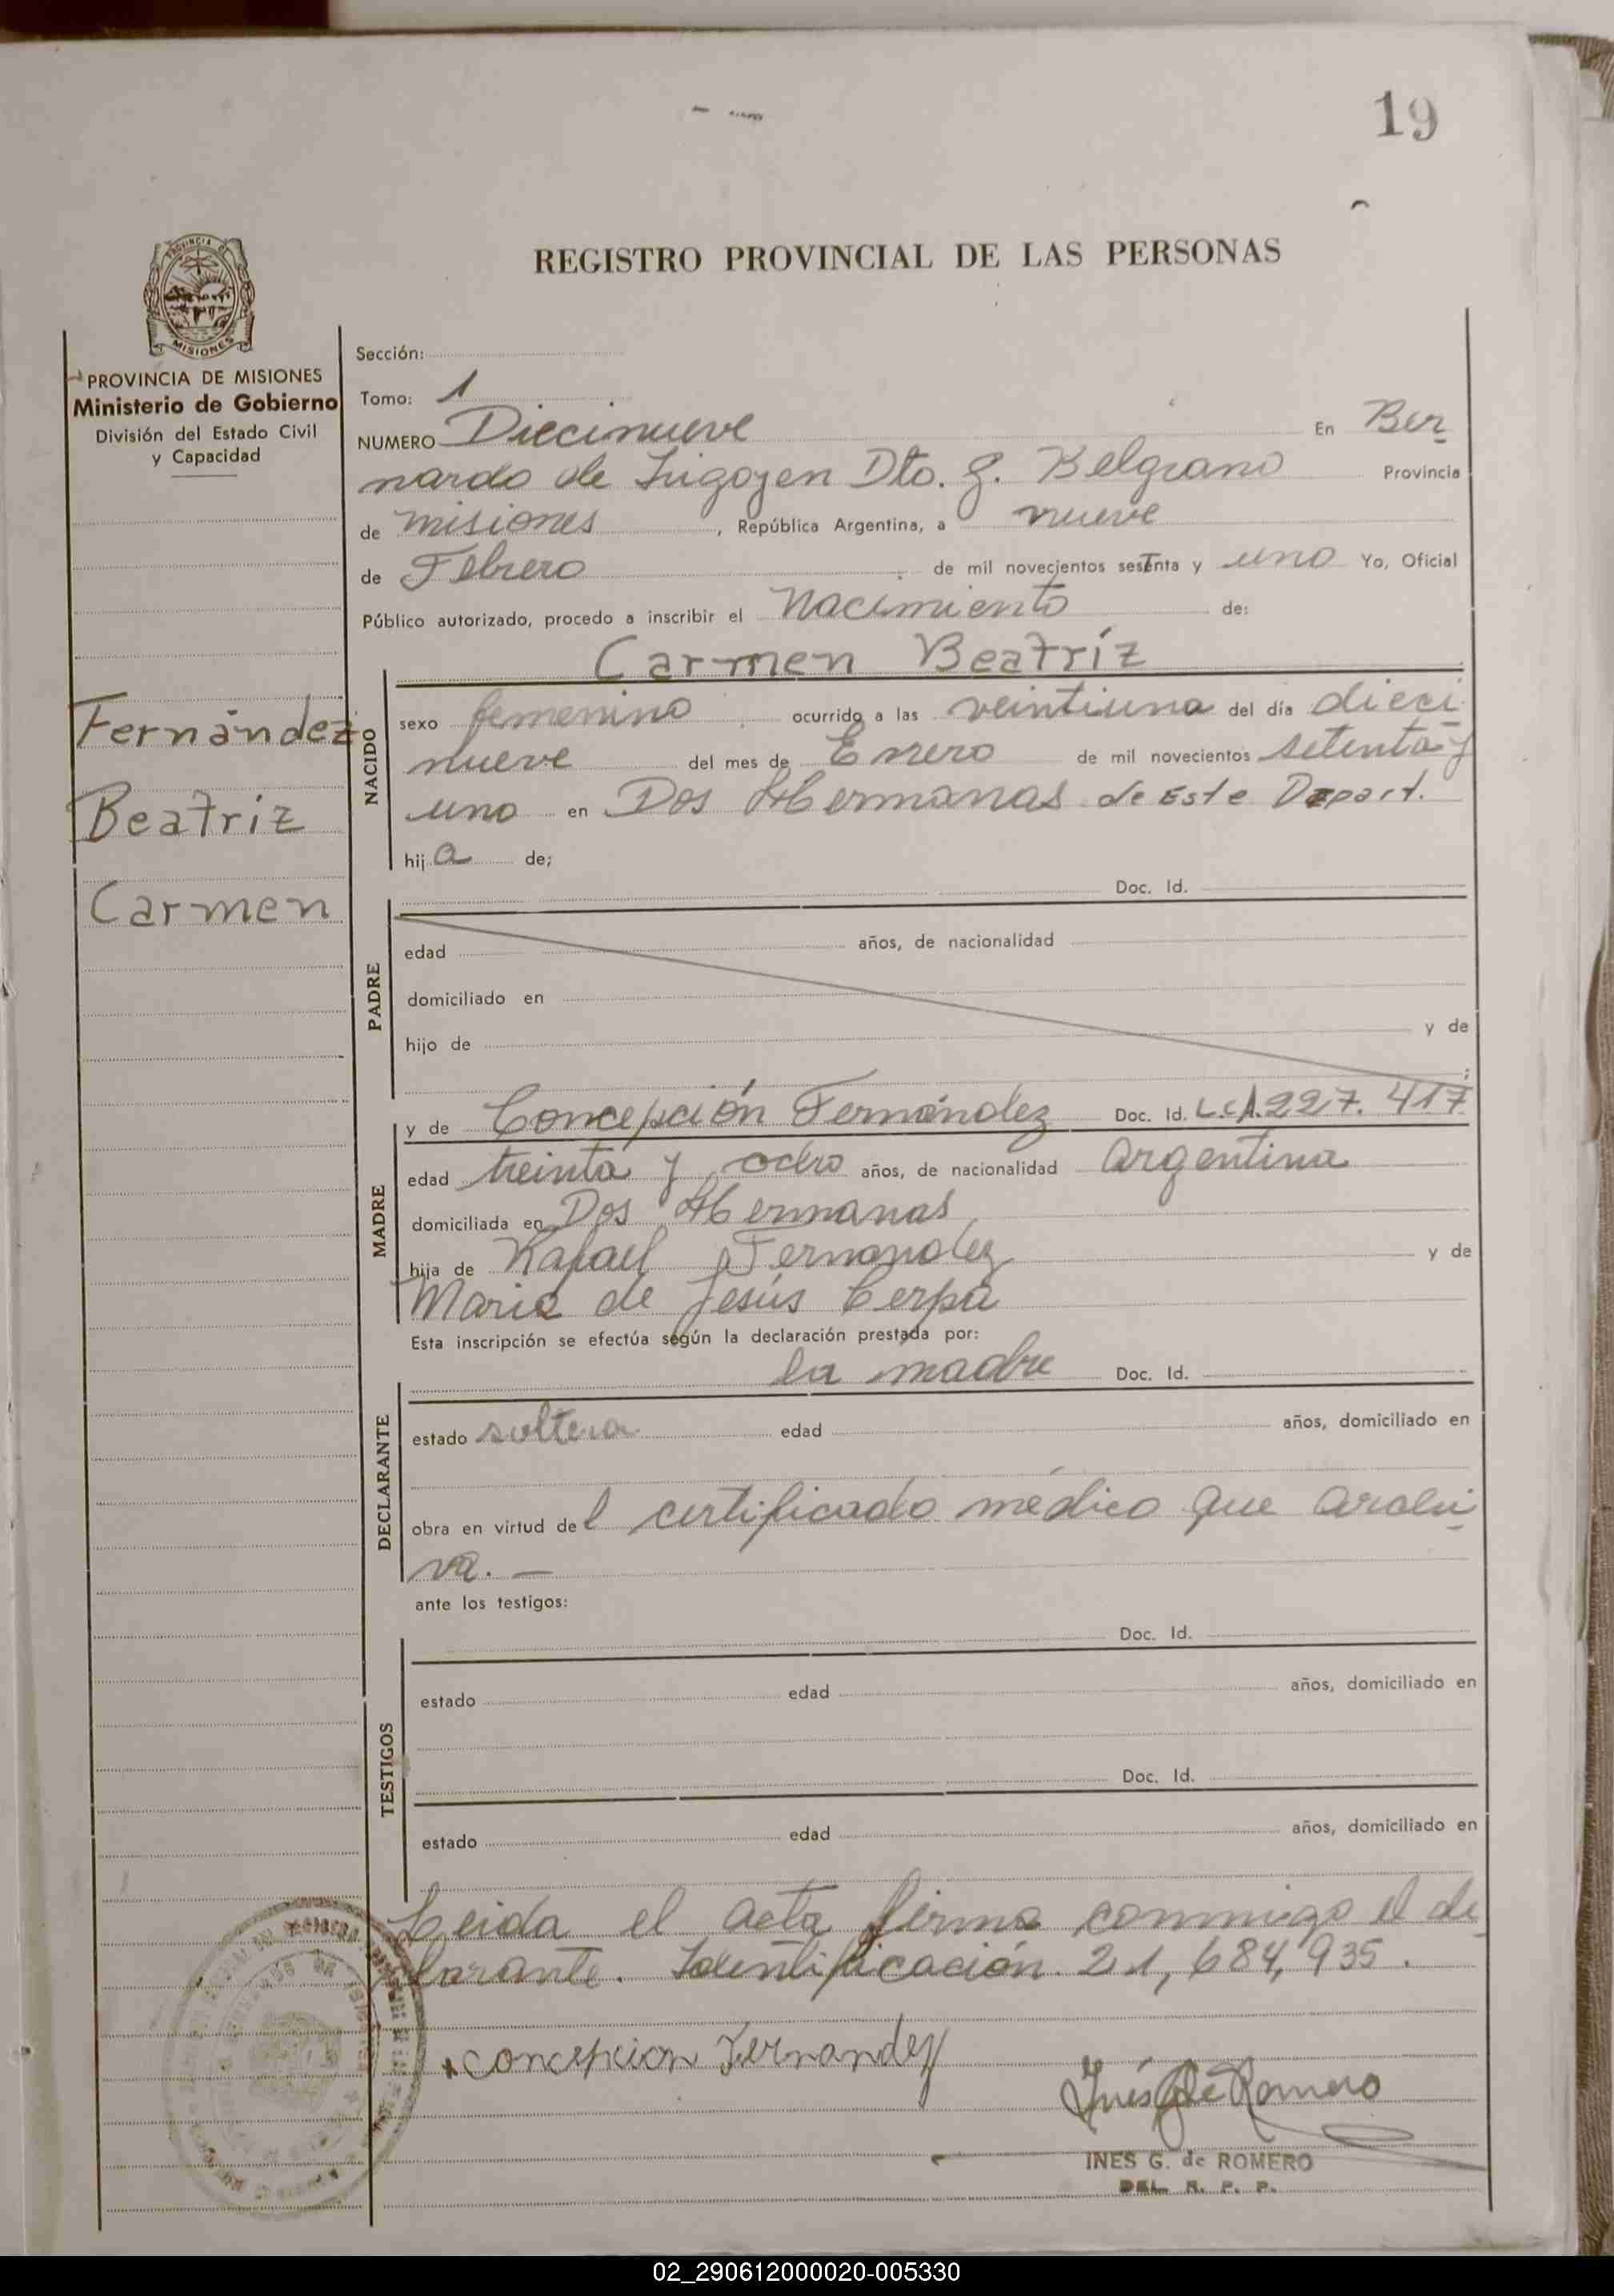 19
REGISTRO PROVINCIAL DE LAS PERSONAS
MISIONES
PROVINCIA DE MISIONES
Ministerio de Gobierno
División del Estado Civil
y Capacidad
Fernández
Beatriz
Carmen
Sección:
Tomo: 1
NUMERO Diecinueve En Ber
nardo de Irigoyen Dto. g. Belgrano Provincia
de misiones, República Argentina, a nueve
de Febrero de mil novecientos setenta y uno Yo, Oficial
Público autorizado, procedo a inscribir el Nacimiento de:
Carmen Beatríz
NACIDO
sexo femenino ocurrido a las veintiuna del día dieci
nueve del mes de Enero de mil novecientos setenta y
uno en Dos Hermanas de Este Depart.
hija de;
Doc. Id.
PADRE
edad años, de nacionalidad
domiciliado en
hijo de y de
;
MADRE
y de Concepción Fernández Doc. Id. L.c.1.227.417
edad treinta y ocho años, de nacionalidad Argentina
domiciliada en Dos Hermanas
hija de Rafael Fernandez y de
Maria de Jesús Cerpa
Esta inscripción se efectúa según la declaración prestada por:
la madre Doc. Id.
DECLARANTE
estado soltera edad años, domiciliado en
obra en virtud del certificado médico que archi
va. —
ante los testigos:
Doc. Id.
TESTIGOS
estado edad años, domiciliado en
Doc. Id.
estado edad años, domiciliado en
Leida el acta firma conmigo el de
clarante. Identificación. 21,684,935.
x concepcion Fernandez
Inés G de Romero
INES G. de ROMERO
DEL. R. P. P.
02_290612000020-005330